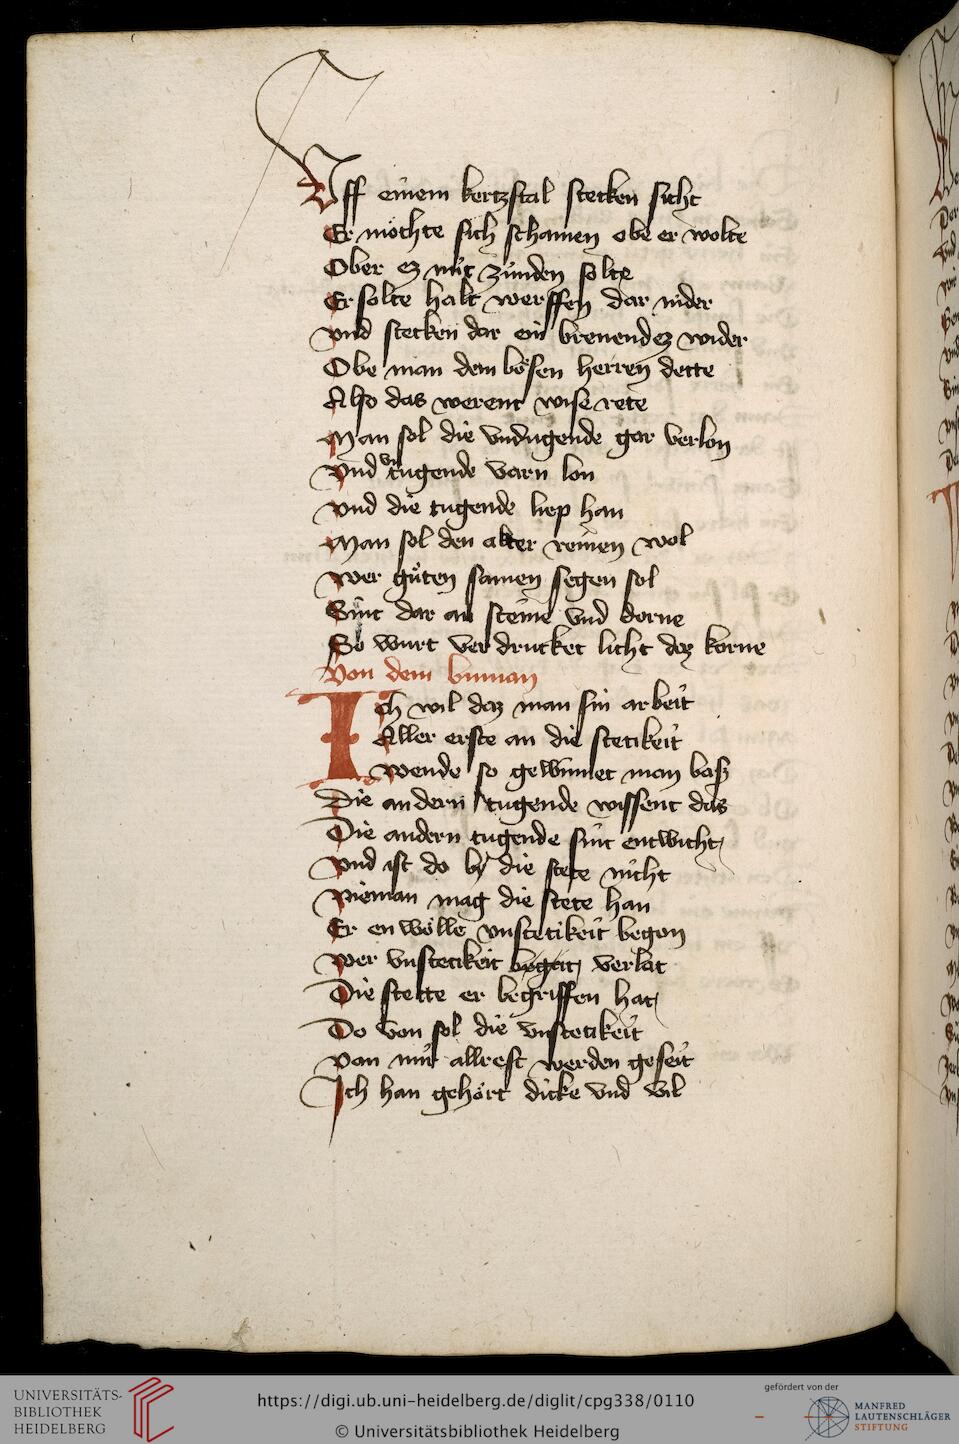 Uff einem kertzstal stecken sicht
Er möchte sich schamen obe er wolte
Ober ez nüt zünden solte
Er solte halt werffen dar nider
vnd stecken dar ein brenendez wider
Obe man dem bösen herren dette
Also das werent wise rete
Man sol die vndugende gar verlon
vnd vntugende varn lon
vnd die tugende liep han
Man sol den akker reinen wol
wer güten samen segen sol
Sint dar an steine vnd dorne
So wurt verdrucket licht dez korne
von dem buman
Ich wil daz man sin arbeit
Aller erste an die stetikeit
wende so gewinnet man basz
Die andern tugende wissent das
Die andern tugende sint entwicht
vnd ist do by die stete nüht
Nieman mag die stete han
Er en wölle vnstetikeit began
wer vnstetikeit begat verlat
Die stette er begriffen hat
Do von sol die vnstetikeit
von mir allrest werden geseit
Ich han gehört dicke vnd vil
UNIVERSITÄTS-
BIBLIOTHEK
HEIDELBERG
https://digi.ub.uni-heidelberg.de/diglit/cpg338/0110
© Universitätsbibliothek Heidelberg
gefördert von der
MANFRED
LAUTENSCHLÄGER
STIFTUNG